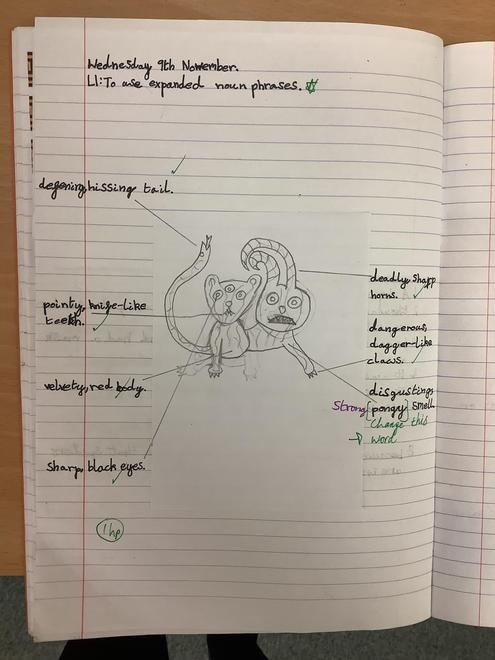 Wednesday 9th November.
LI: To use expanded noun phrases.
degening, hissing tail.
deadly, sharp
horns.
pointy, knife-like
teekh.
dangerous,
dagger-like
claws.
velvety, red body.
disgusting,
Strong [pongy] smell.
Change this
→ word
sharp, black eyes.
1hp